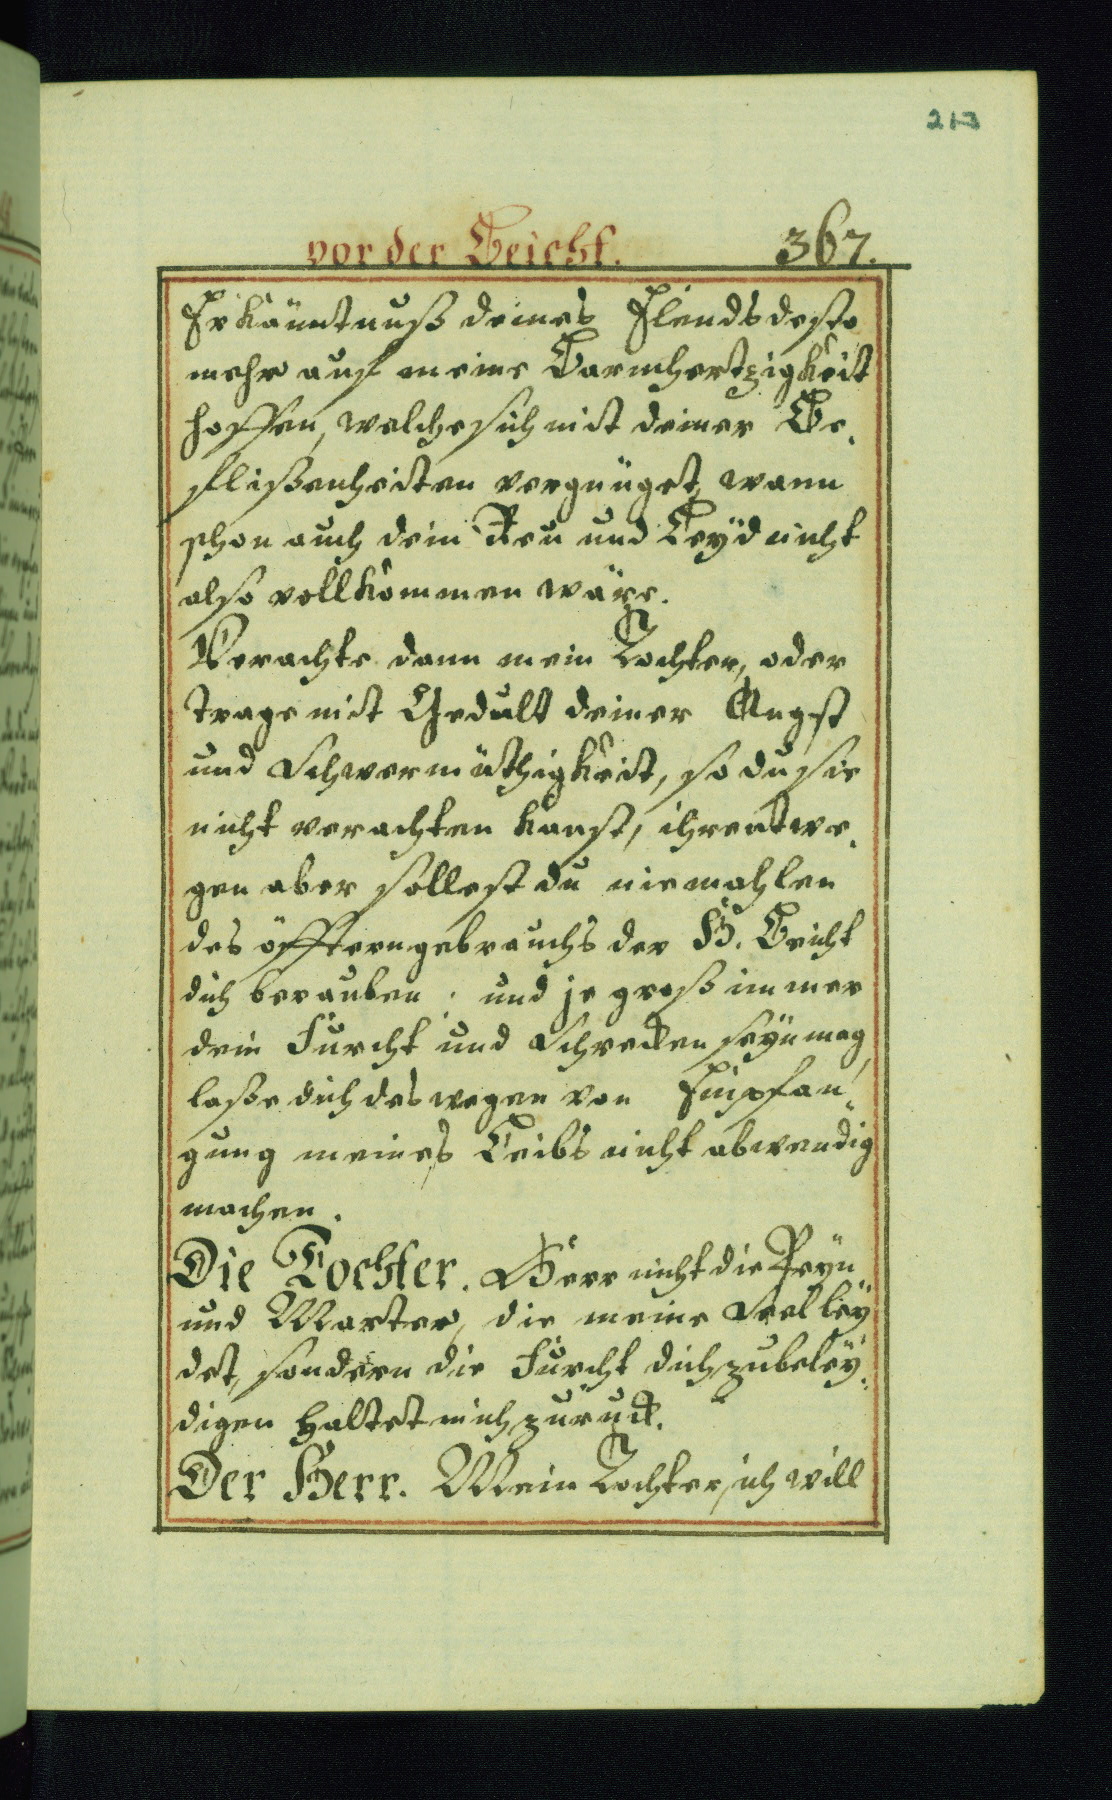 213
vor der Beicht. 367.
Erkänntnuß deines Elends desto
mehr auf meine Barmhertzigkeit
hoffen, welche sich mit deiner Be-
flißenheiten vergnüget, wann
schon auch dein Reu und Leyd nicht
also vollkommen wäre.
Verachte dann mein Tochter, oder
trage mit Gedult deiner Angst
und Schwermüthigkeit, so du sie
nicht verachten kanst, ihrentwe-
gen aber sollest du niemahlen
des öfftern gebrauchs der H. Beicht
dich berauben: und je groß immer
dein Furcht und Schrecken seyn mag,
laße dich deswegen von Empfan-
gung meines Leibs nicht abwendig
machen.
Die Tochter. Herr nicht die Peyn
und Marter, die meine Seel ley-
det, sondern die Furcht dich zu beley-
digen haltet mich zuruck.
Der Herr. Mein Tochter, ich will